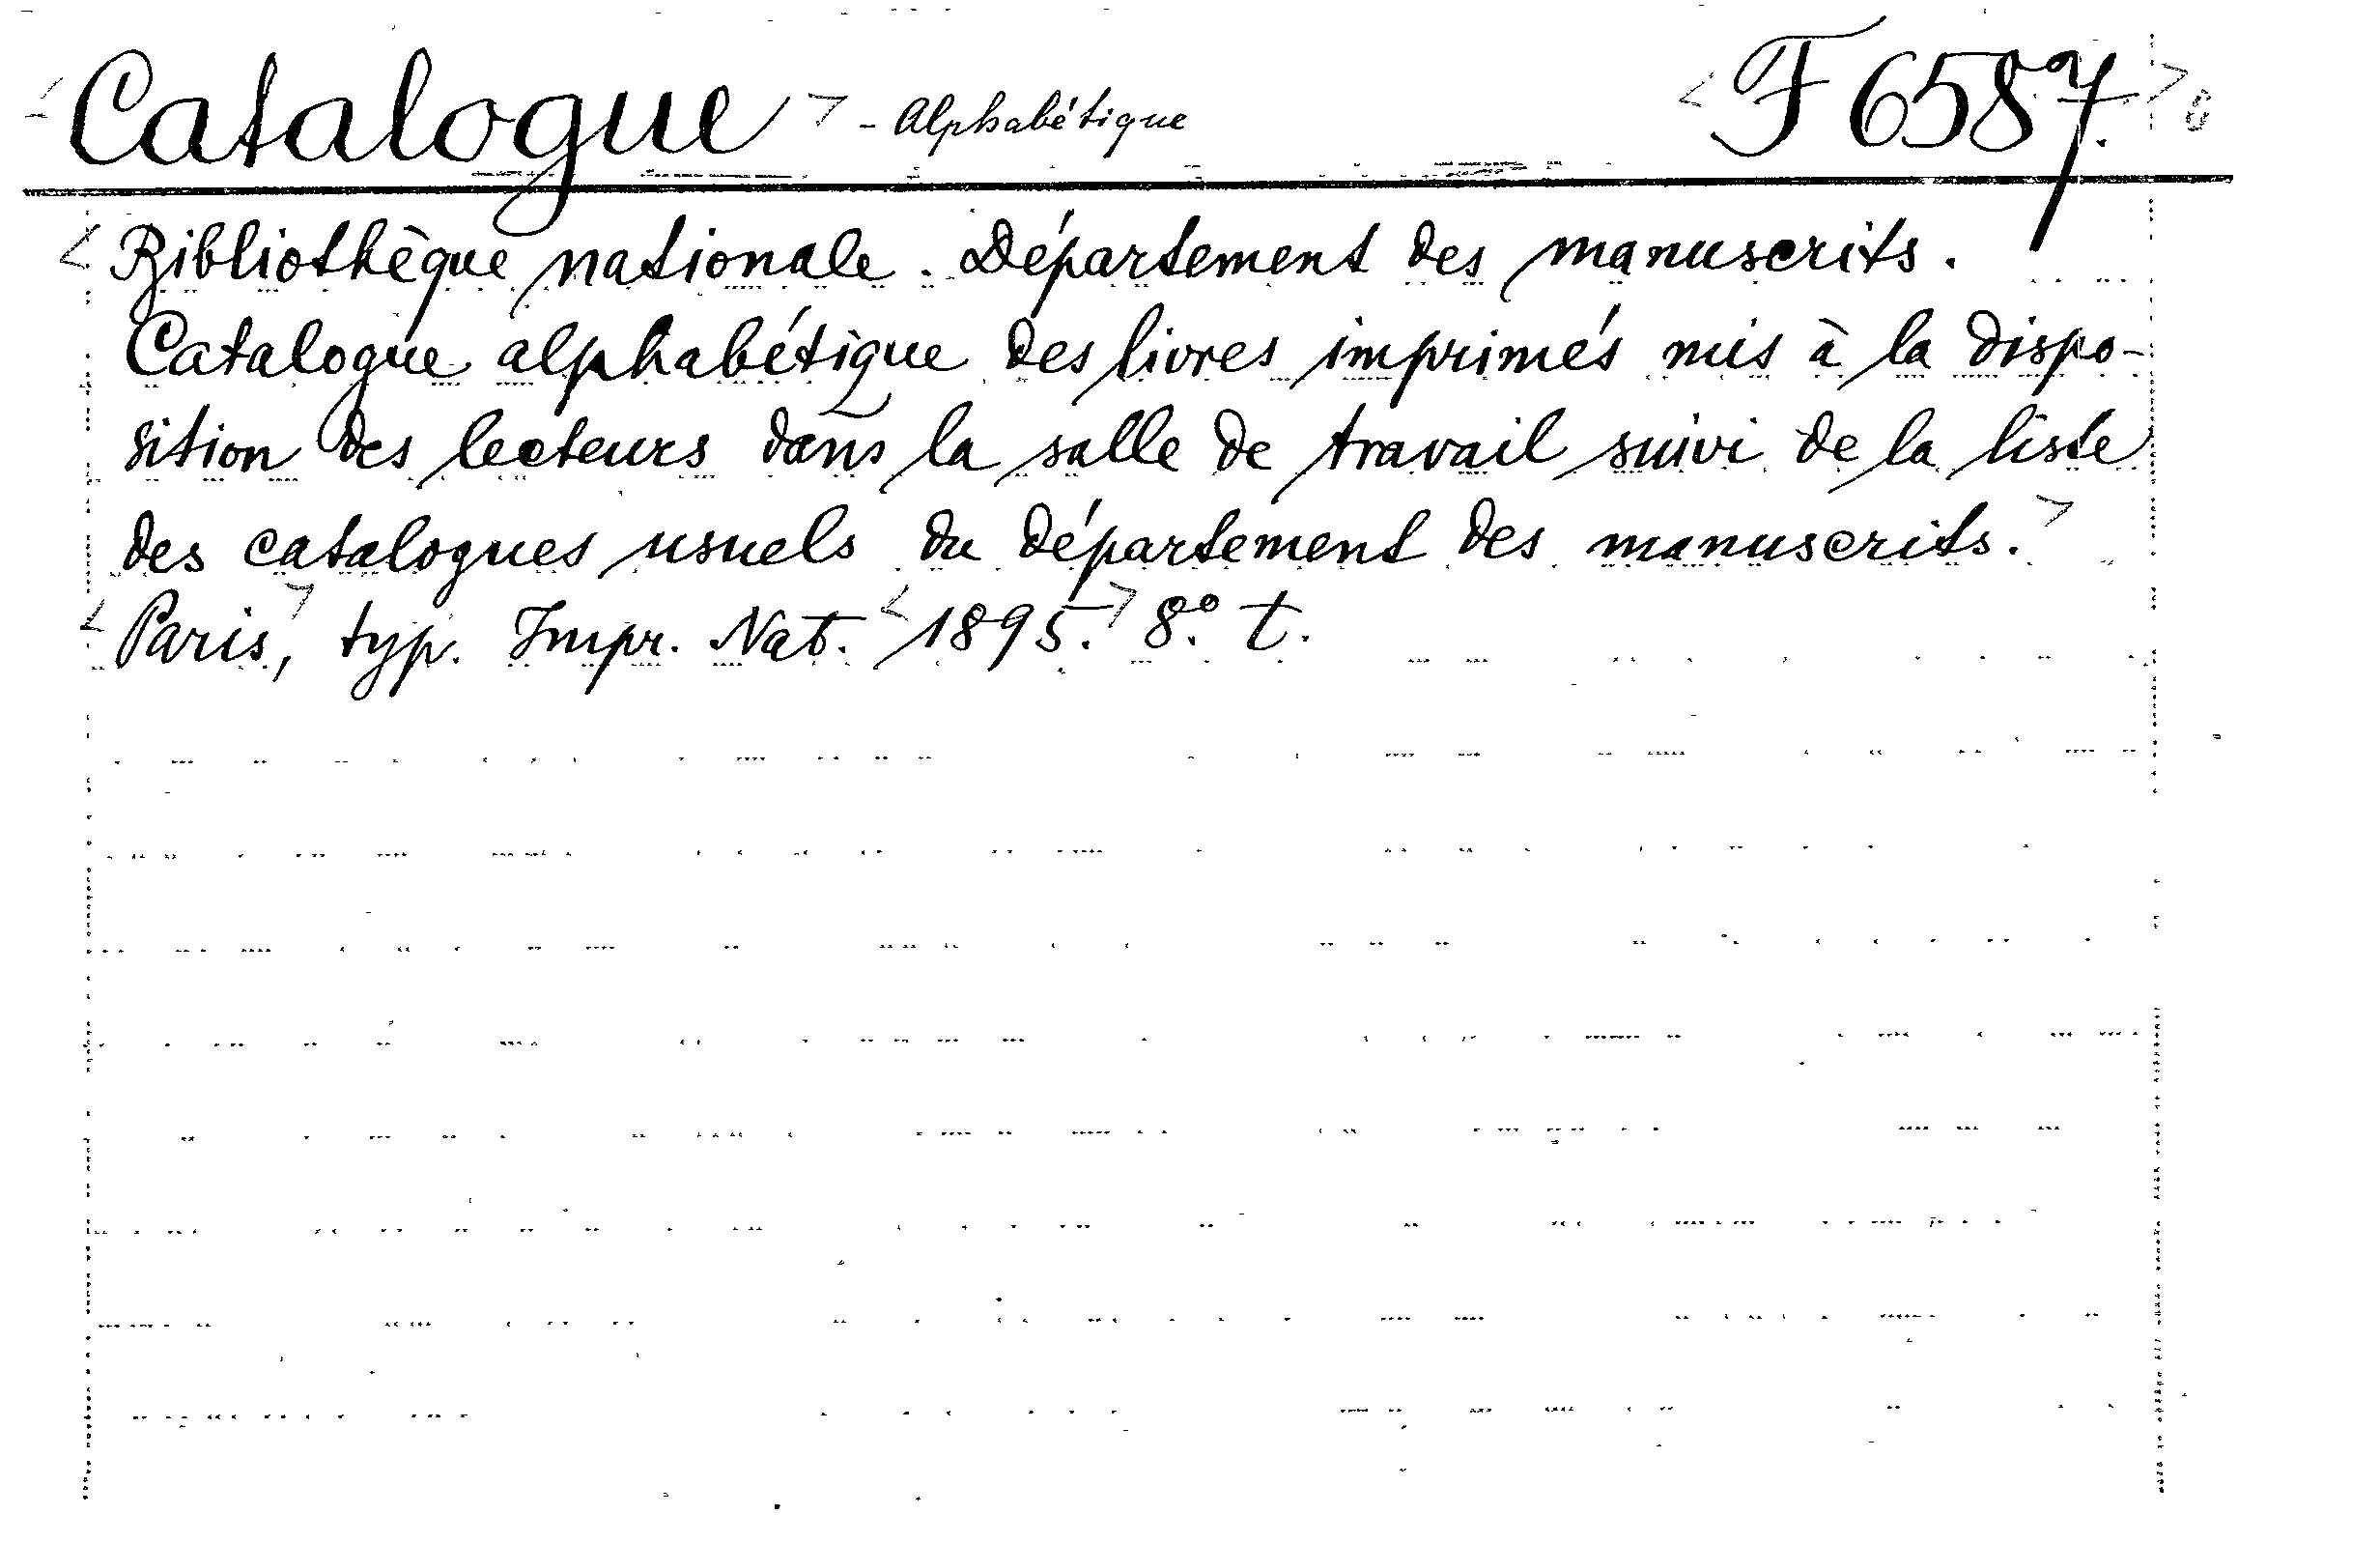 <Catalogue> - Alphabétique <F 6587.>
<Bibliothèque nationale. Département des manuscrits.
Catalogue alphabétique des livres imprimés mis à la dispo-
sition des lecteurs dans la salle de travail suivi de la liste
des catalogues usuels du département des manuscrits.>
<Paris,> typ. Impr. Nat. <1895.> 8.° t.